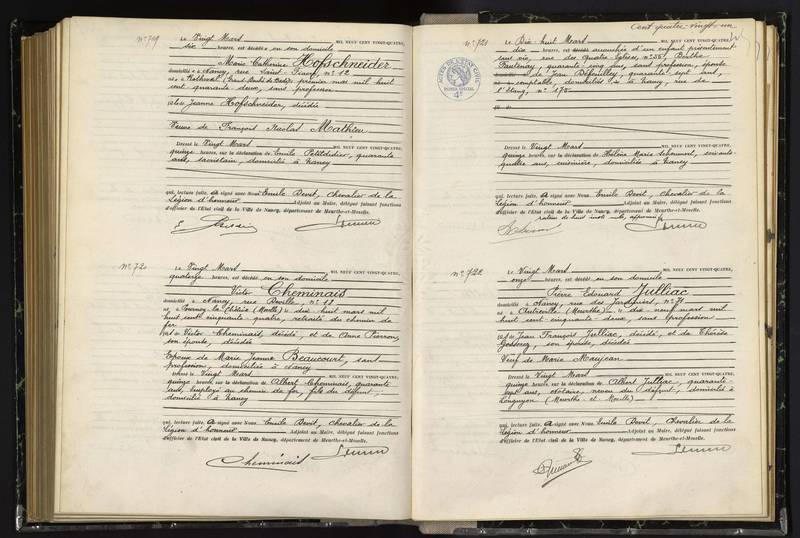 N° 719
Le Vingt Mars MIL NEUF CENT VINGT-QUATRE,
dix heures, est décédée en son domicile
Marie Catherine Hofschneider
domiciliée à Nancy, rue Saint N° 12
premier mai mil huit
cent quarante deux, sans profession
Jeanne Hofschneider, décédée
Veuve de François Nicolas Mathieu
Dressé le Vingt Mars MIL NEUF CENT VINGT-QUATRE,
quinze heures, sur la déclaration de Emile Petitdidier, quarante
ans, sacristain, domicilié à Nancy
qui, lecture faite, a signé avec Nous Emile Bevit, Chevalier de la
Légion d'honneur Adjoint au Maire, délégué faisant fonctions
d'officier de l'État civil de la Ville de Nancy, département de Meurthe-et-Moselle.
N° 720
Le Vingt Mars MIL NEUF CENT VINGT-QUATRE,
quatorze heures, est décédé en son domicile
Victor Cheminais
domicilié à Nancy, rue N° 12
né à Pournoy-la-Chétive (Moselle) le dix huit mars mil
huit cent cinquante-quatre, retraité du chemin de
fer
fils de Victor Cheminais, décédé, et de Anne Pierron,
son épouse, décédée
Epoux de Marie Jeanne Beaucourt, sans
profession, domiciliée à Nancy
Dressé le Vingt Mars MIL NEUF CENT VINGT-QUATRE,
quinze heures, sur la déclaration de Albert Cheminais, quarante
ans, employé au chemin de fer, fils du défunt,
domicilié à Nancy
qui, lecture faite, a signé avec Nous Emile Bevit, Chevalier de la
Légion d'honneur Adjoint au Maire, délégué faisant fonctions
d'officier de l'État civil de la Ville de Nancy, département de Meurthe-et-Moselle.
Cheminais
Cent quatre-vingt-un
N° 721
Le Dix-huit Mars MIL NEUF CENT VINGT-QUATRE,
dix heures, est accouchée d'un enfant présentement
sans vie, rue des Quatre Eglises, n° 55, Berthe
quarante cinq ans, sans profession, épouse
de Jean quarante sept ans,
comptable, domiciliés à Nancy, rue de
l'Etang, n° 178
Dressé le Vingt Mars MIL NEUF CENT VINGT-QUATRE,
quinze heures, sur la déclaration de Héloïse Marie soixante-
quatre ans, domiciliée à Nancy
qui, lecture faite, a signé avec Nous Emile Bevit, Chevalier de la
Légion d'honneur Adjoint au Maire, délégué faisant fonctions
d'officier de l'État civil de la Ville de Nancy, département de Meurthe-et-Moselle.
N° 722
Le Vingt Mars MIL NEUF CENT VINGT-QUATRE,
onze heures, est décédé en son domicile
Pierre Edouard Julliac
domicilié à Nancy, rue des Jardiniers, n° 71
né à Autreville (Meurthe) le dix neuf mars mil
huit cent cinquante-deux, sans profession
fils de Jean François Julliac, décédé, et de Thérèse
son épouse, décédée
Veuf de Marie Maujean
Dressé le Vingt Mars MIL NEUF CENT VINGT-QUATRE,
quinze heures, sur la déclaration de Albert Julliac, quarante-
sept ans, notaire, neveu du défunt, domicilié à
Longuyon (Meurthe-et-Moselle)
qui, lecture faite, a signé avec Nous Emile Bevit, Chevalier de la
Légion d'honneur Adjoint au Maire, délégué faisant fonctions
d'officier de l'État civil de la Ville de Nancy, département de Meurthe-et-Moselle.